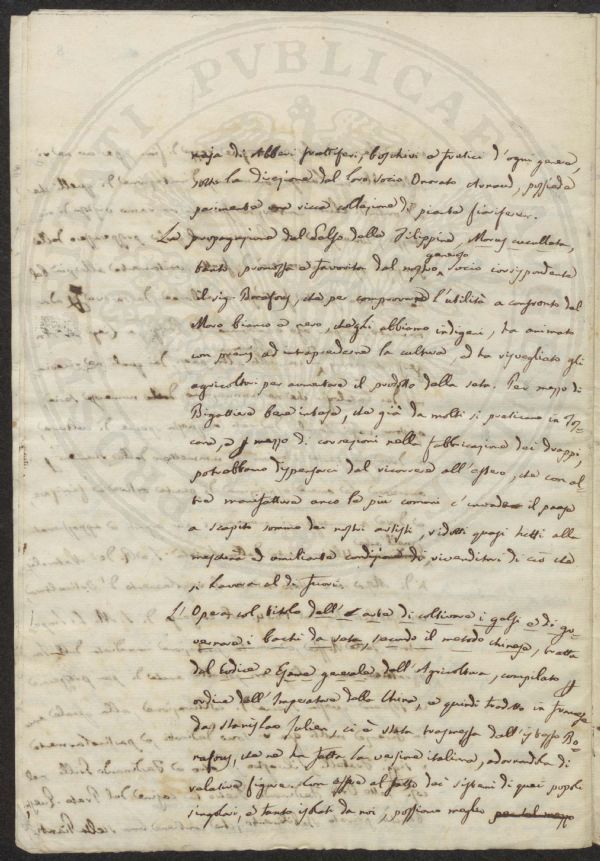 naja di Alberi fruttiferi, boschivi e fratici d'ogni genere,
sotto la direzione del loro socio Onorato Arnaud, possiede
parimente una ricca collezione di piante fiorifere.
La propagazione del Gelso delle Filippine, Morus cucullata,
tanto promossa e favorita dal nostro socio corrispondente
il sig. Bonafous, che per comprovarne l'utilità a confronto del
Moro bianco e nero, che gli abbiamo indigeni, ha animato
con premj ad intraprenderne la cultura, ed ha risvegliato gli
agricoltori per aumentare il prodotto della seta. Per mezzo di
Bigattiere bene intese, che già da molti si praticano in To-
cana, e p mezzo di correzioni nella fabbricazione dei drappi,
potrebbamo dispensarci dal ricorrere all'estero, che con al-
tre manifatture anco le più comuni c'invade il paese
a scapito sommo dei nostri artisti, ridotti quasi tutti alla
meschina ed umiliante condizione di rivenditori di ciò che
si lavora al di fuori.
L'Opera col titolo dell'arte di coltivare i gelsi e di go-
vernare i bachi da seta, secondo il metodo chinese, tratta
dal Codice, e Esame generale dell'Agricoltura, compilato p
ordine dell'Imperatore della China, e quindi tradotto in francese
da Stanislao Julien, ci è stata trasmessa dall'istesso Bo-
nafous, che ne ha fatta la versione italiana, adornandola di
relative figure. Con essere al fatto dei sistemi di quei popoli
singolari, e tanto isolati da noi, possiamo meglio per tal mezzo